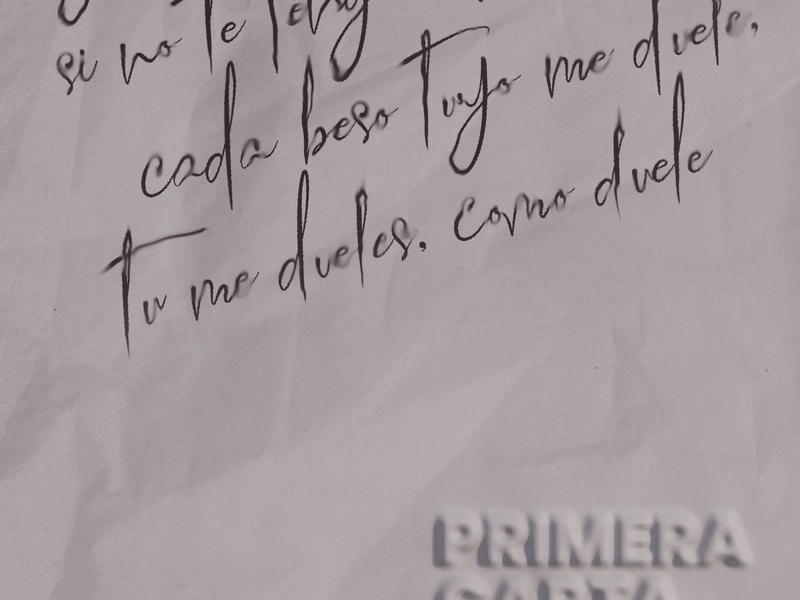 si no te tengo
cada beso tuyo me duele.
tu me dueles. como duele
PRIMERA
CARTA